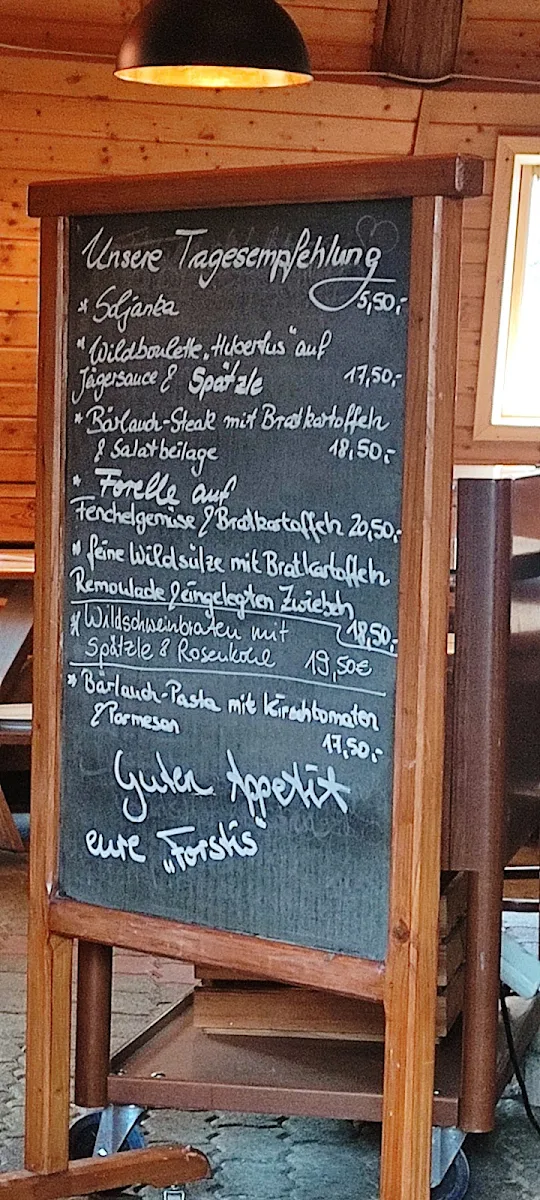 Unsere Tagesempfehlung
* Soljanka 5,50,-
* Wildboulette „Hubertus" auf
Jägersauce & Spätzle 17,50,-
* Bärlauch-Steak mit Bratkartoffeln
& Salatbeilage 18,50,-
* Forelle auf
Fenchelgemüse & Bratkartoffeln 20,50,-
* feine Wildsülze mit Bratkartoffeln
Remoulade & eingelegten Zwiebeln
18,50,-
* Wildschweinbraten mit
Spätzle & Rosenkohl 19,50€
* Bärlauch-Pasta mit Kirschtomaten
& Parmesan
17,50,-
Guten Appetit
eure „Forstis"